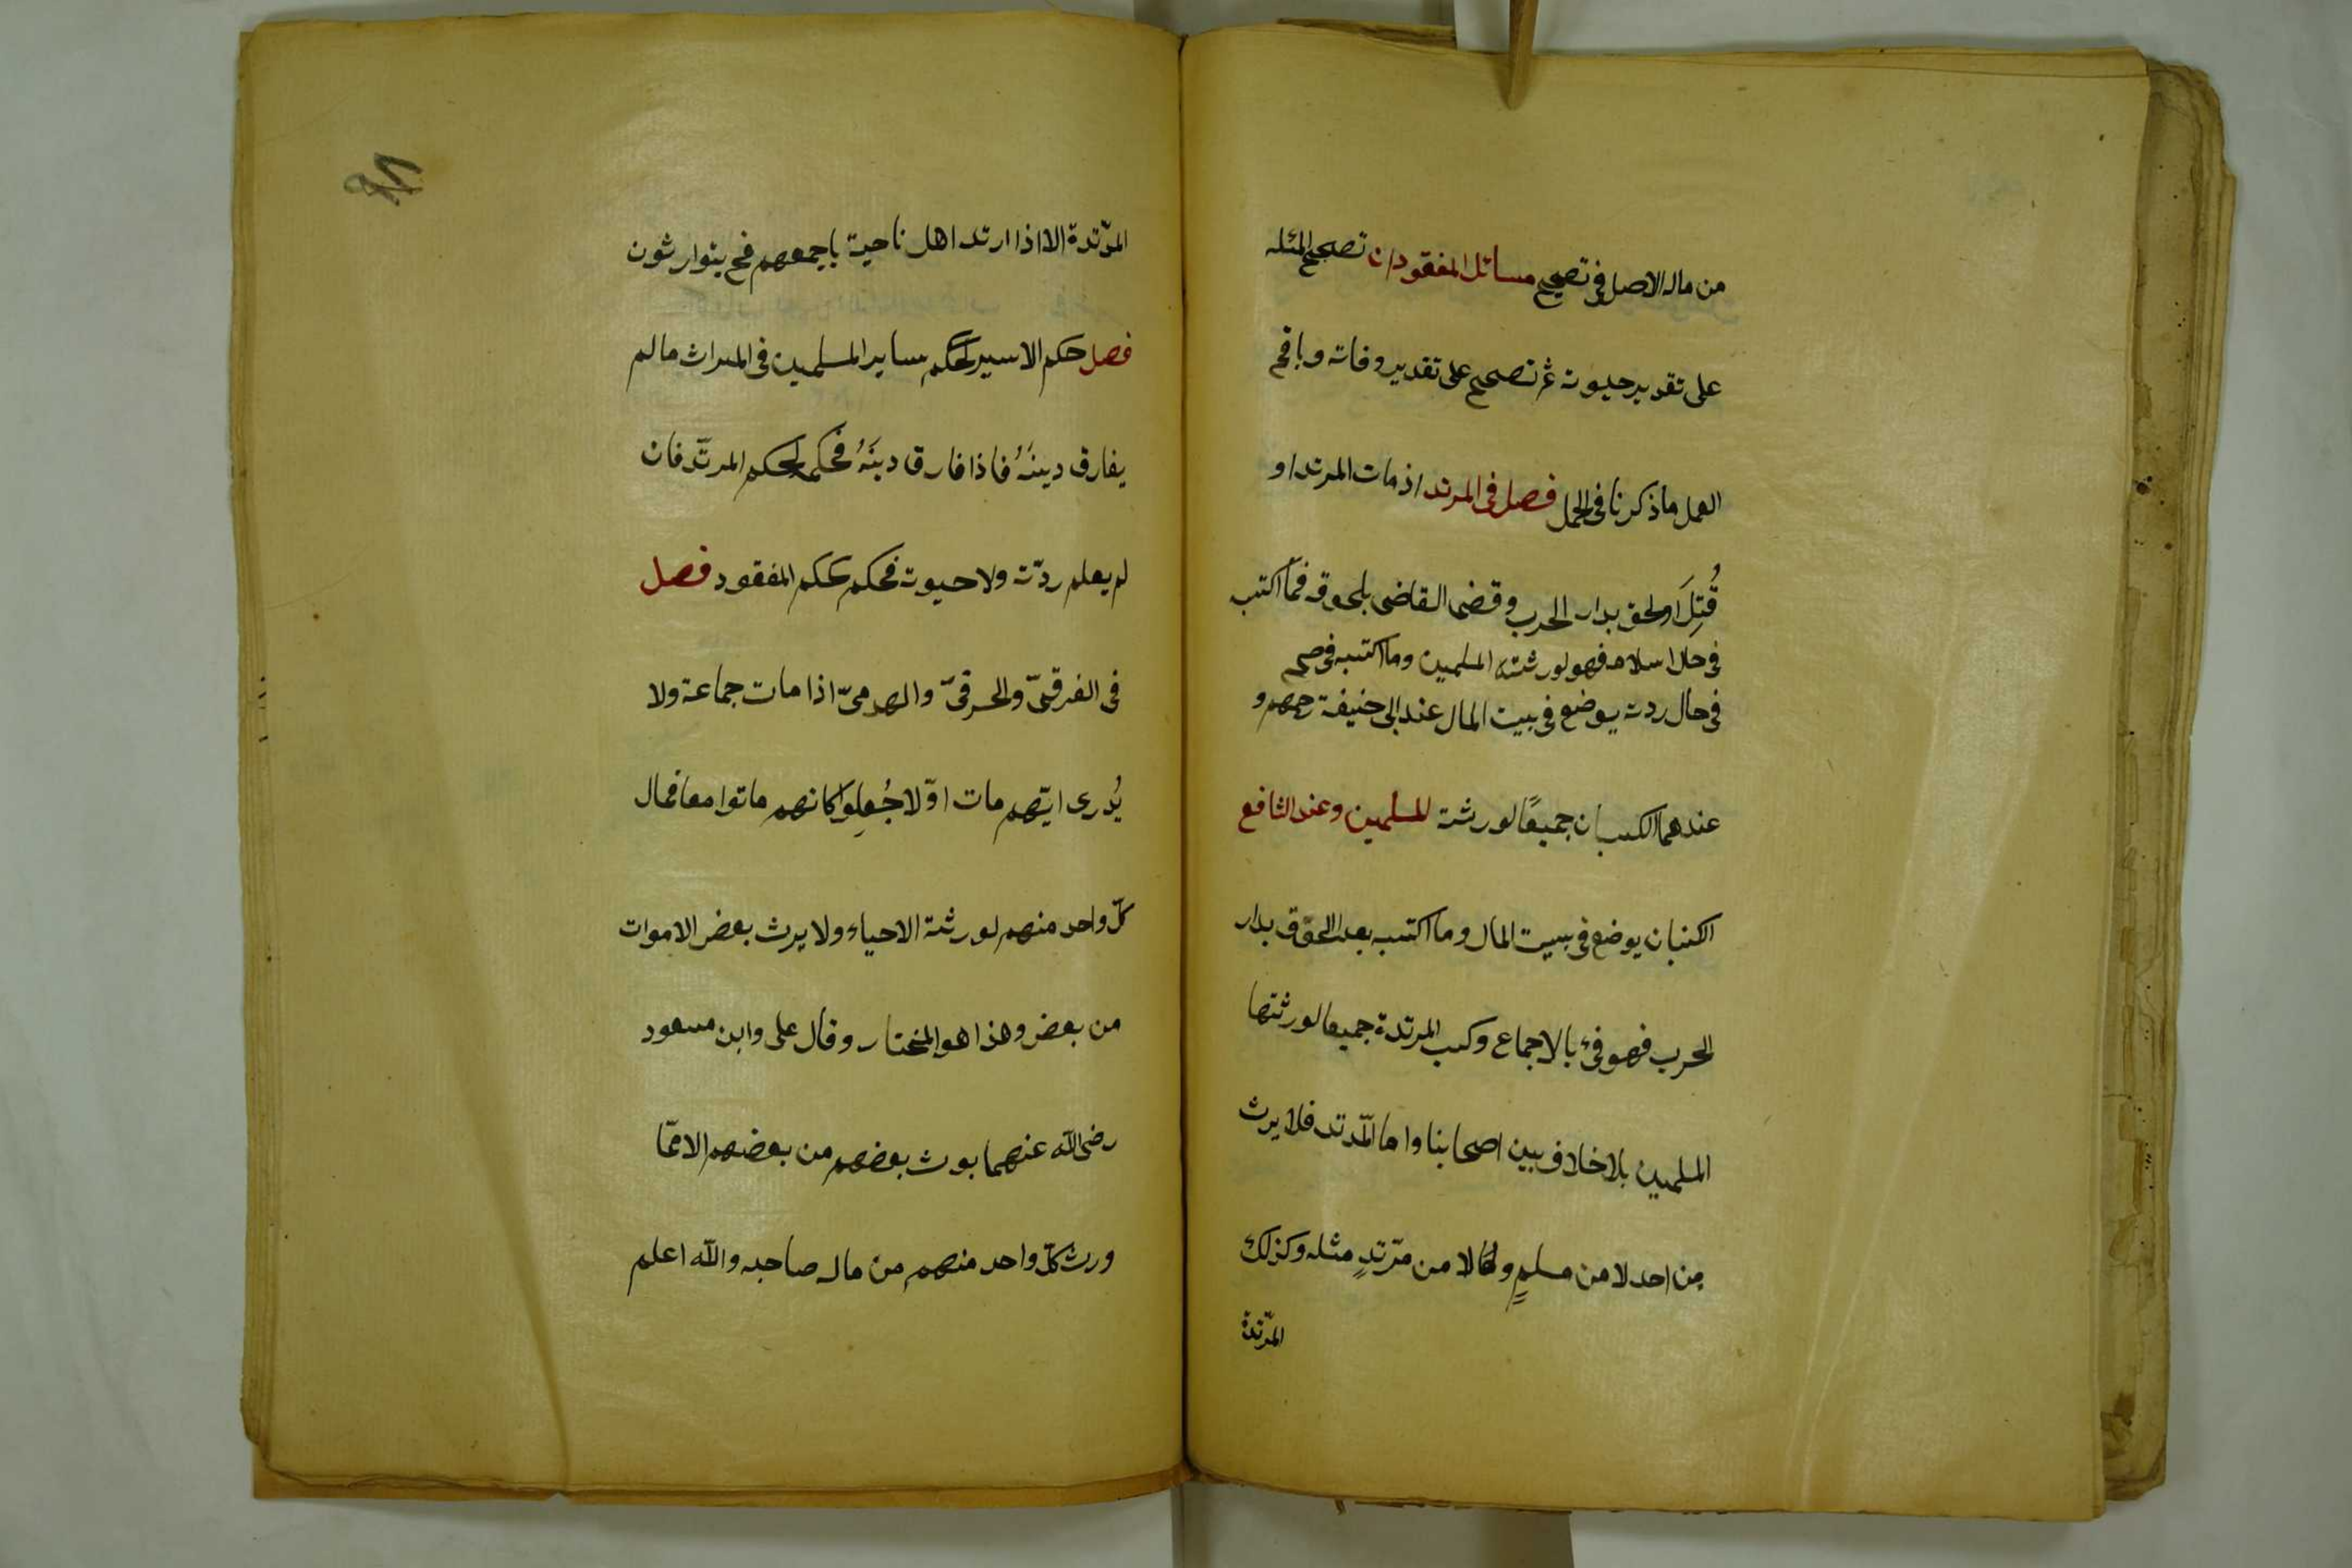 من ماله الاصل فى تصحيح مسائل المفقود ان تصحح المئله
على تقدير حيوته ثم تصحح على تقدير وفاته وباقى
العمل ما ذكرنا فى الحمل فصل فى المرتد اذ مات المرتد او
قُتِلَ اولحق بدار الحرب وقضى القاضى بلحوقه فما اكتسب
فى حال اسلامه فهو لورثته المسلمين وما اكتسبه فى
فى حال ردته يوضع فى بيت المال عند ابى حنيفة رحمهم و
عندهما الكسبان جميعًا لورثته المسلمين وعند الشافع
الكسبان يوضع فى بييت المال وما اكتسب بعد اللحوق بدار
الحرب فهو فئ بالاجماع وكسب المرتدة جميعا لورثتها
المسلمين بلا خلاف بين اصحابنا واما المرتد فلا يرث
من احد لا من مسلمٍ ولا من مرّتدٍ مثله وكذلك
المرّتدة
المرّتدة الا اذا ارتد اهل ناحية باجمعهم فح يتوارثون
فصل حكم الاسير كحكم ساير المسلمين فى الميراث ما لم
يفارق دينَهُ فاذا فارق دينَهُ فحكمه كحكم المرتّد فان
لم يعلم ردّته ولا حيوته فحكمه كحكم المفقود فصل
فى الغرقىّ والحرقىّ والهدمىّ اذا مات جماعة ولا
يُدرى ايّهم مات اوّلا جُعِلوَا كانهم ماتوا معا فمال
كلّ واحد منهم لورثته الاحياء ولا يرث بعض الاموات
من بعض وهذا هو المختار وقال على وابن مسعود
رضى الله عنهما يورث بعضهم من بعضهم الا ممّا
ورث كلّ واحد منهم من ماله صاحبه والله اعلم